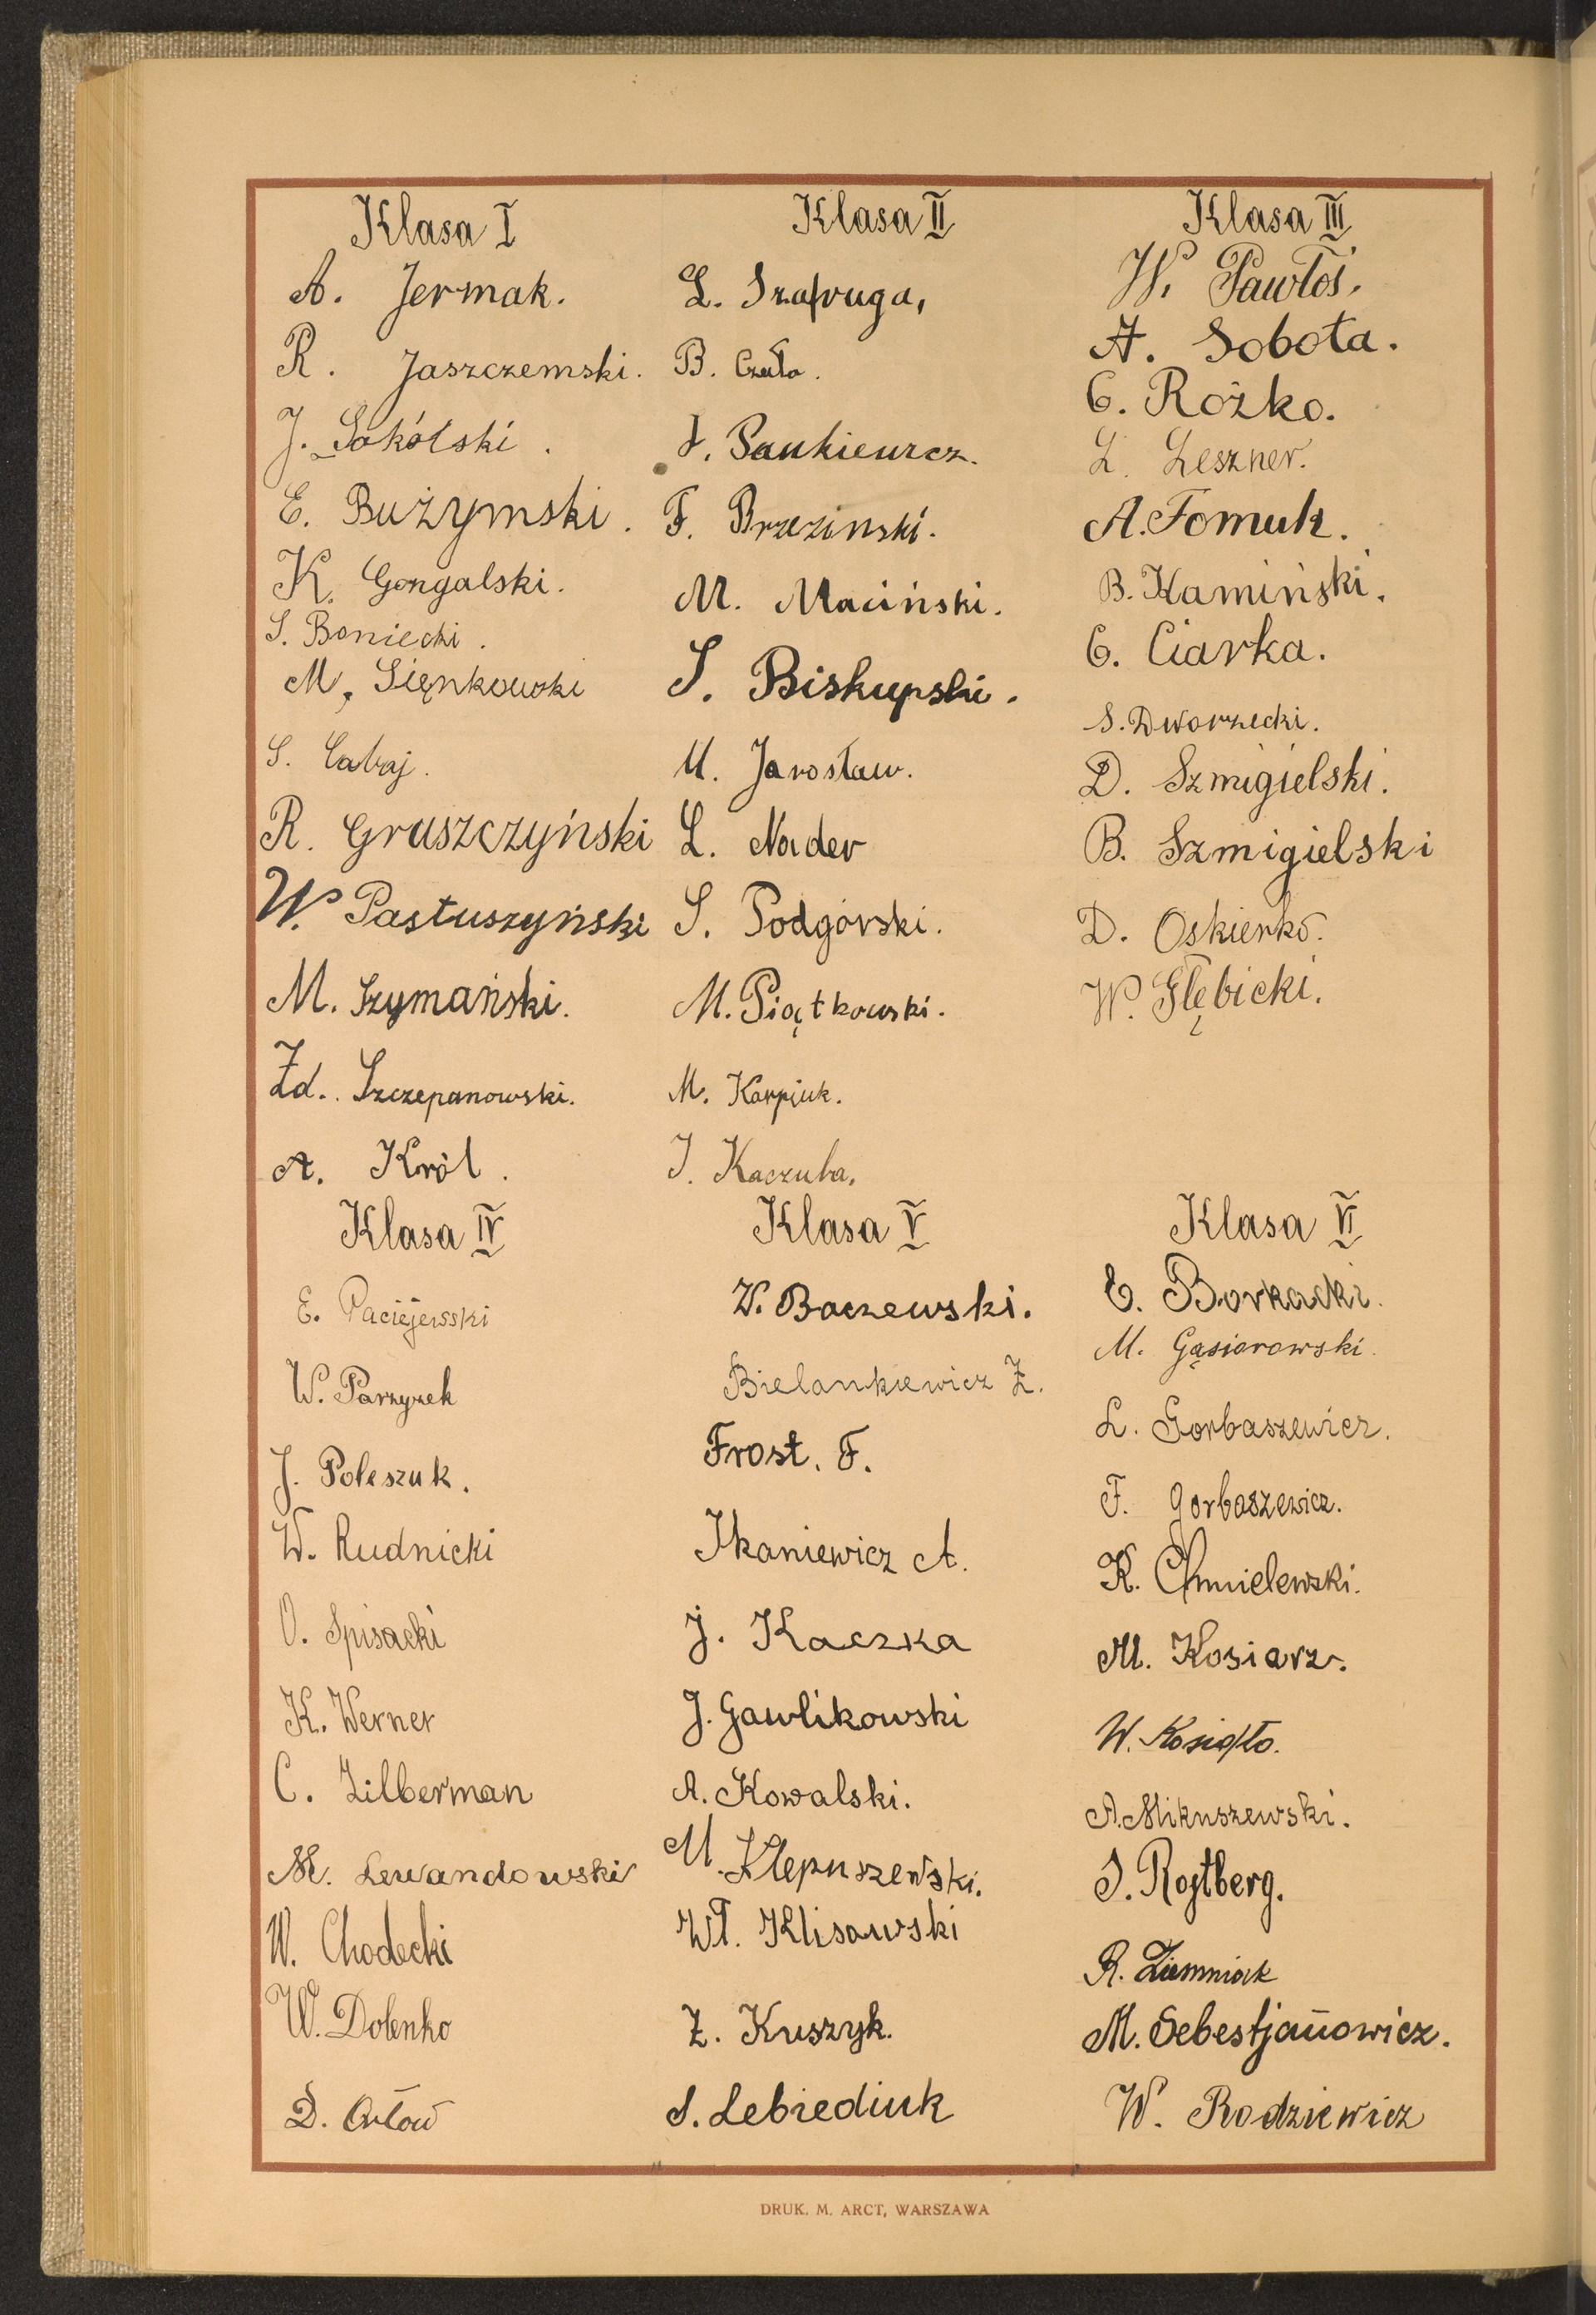 Klasa I
A. Jermak.
R. Jaszczemski.
J. Sokólski.
E. Bużymski.
K. Gongalski.
S. Boniecki.
M. Sięnkowski
S. Cabaj.
R. Gruszczyński
W. Pastuszyński
M. Szymański.
Zd. Szczepanowski.
A. Król.
Klasa II
L. Szafruga,
B. Czuła.
J. Pankiewicz.
F. Brzezinski.
M. Maciński.
S. Biskupski.
M. Jarosław.
L. Nader
S. Podgórski.
M. Piątkowski.
M. Karpiuk.
J. Kaczuba,
Klasa III
W. Pawłoś.
A. Sobota.
C. Rożko.
L. Leszner.
A. Fomuk.
B. Kamiński.
C. Ciarka.
S. Dworzecki.
D. Szmigielski.
B. Szmigielski
D. Oskierko.
W. Głębicki.
Klasa IV
E. Paciejewsski
W. Parzyzek
J. Poleszuk.
W. Rudnicki
O. Spisacki
K. Werner
C. Zilberman
M. Lewandowski
W. Chodecki
W. Dolenko
D. Orłow
Klasa V
W. Baczewski.
Bielankiewicz Z.
Frost. F.
Ikaniewicz A.
J. Kaczka
J. Gawlikowski
A. Kowalski.
M. Klepuszewski.
Wł. Klisowski
Z. Kuszyk.
S. Lebiediuk
Klasa VI
E. Borkacki.
M. Gąsiorowski.
L. Gorbaszewicz.
F. Gorbaszewicz.
K. Chmielewski.
M. Kosiarz.
W. Kosiafło.
A. Mikuszewski.
S. Rojtberg.
R. Ziemniak
M. Sebestjanowicz.
W. Rodziewicz
DRUK. M. ARCT, WARSZAWA